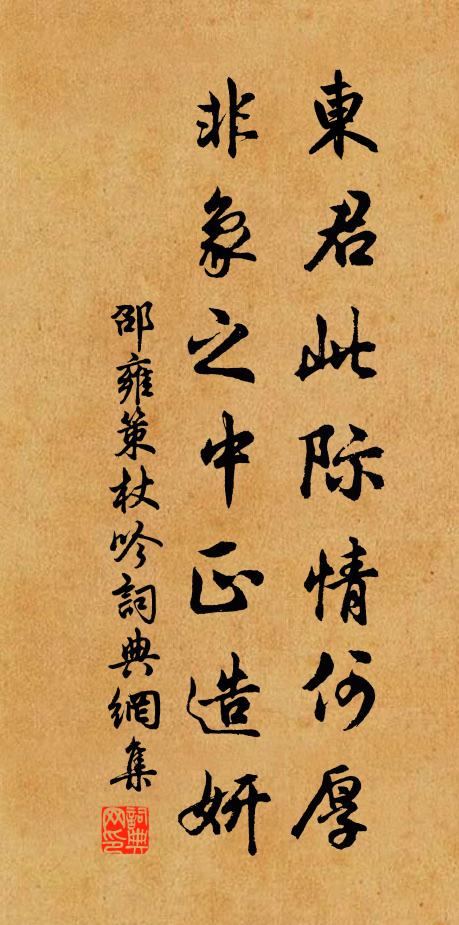 東君此际情何厚
非象之中正造妍
邵雍策杖吟詞典網集
詞典网印